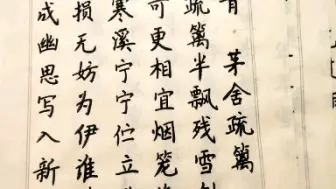 青 茅舍疏篱
疏篱半飘残雪
可更相宜烟笼
寒溪宁宁伫立
损无妨为伊谁
成幽思写入新